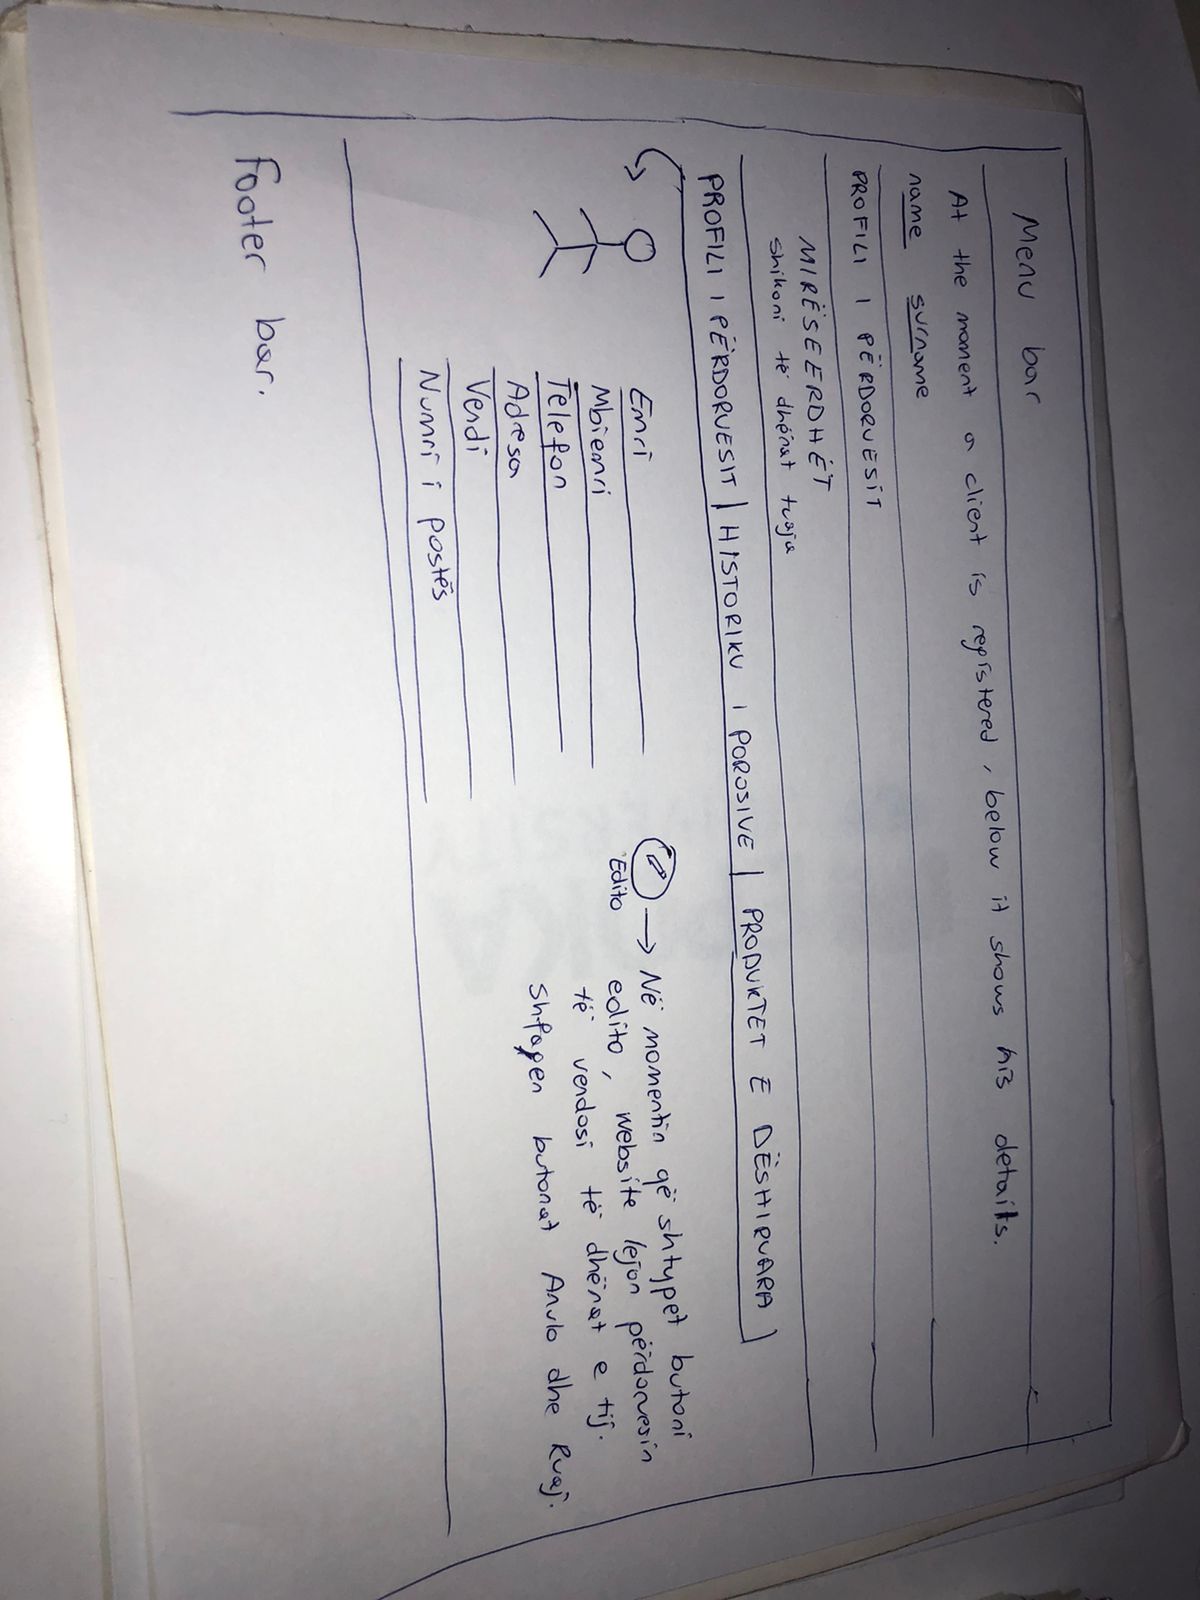 Menu bar
At the moment a client is registered, below it shows his details.
name surname
PROFILI I PËRDORUESIT
MIRËSEERDHËT
shikoni të dhënat tuaja
PROFILI I PËRDORUESIT | HISTORIKU I POROSIVE | PRODUKTET E DËSHIRUARA |
Emri
Mbiemri
Telefon
Adresa
Vendi
Numri i postës
Edito
Në momentin që shtypet butoni
edito, website lejon përdoruesin
të vendosi të dhënat e tij.
Shfaqen butonat Anulo dhe Ruaj.
Footer bar.